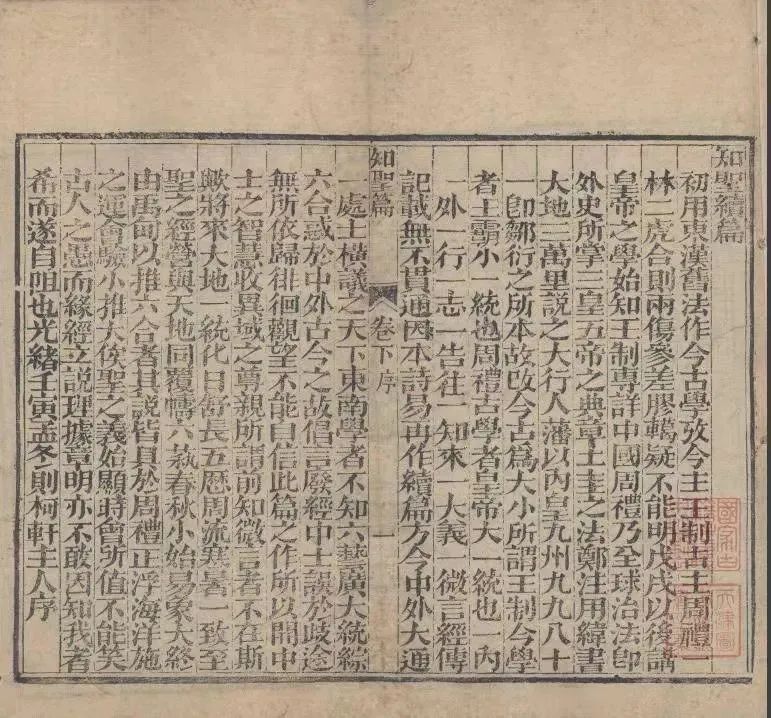 知聖續篇
初用東漢舊法作今古學攷今主王制古主周禮一
林二虎合則兩傷參差膠轕疑不能明戊戌以後講
皇帝之學始知王制專詳中國周禮乃全球治法即
外史所掌三皇五帝之典章土圭之法鄭注用緯書
大地三萬里說之大行人藩以內皇九州九九八十
一即鄒衍之所本故改今古爲大小所謂王制今學
者王霸小一統也周禮古學者皇帝大一統也一內
一外一行一志一告往一知來一大義一微言經傳
記載無不貫通因本詩易再作續篇方今中外大通
知聖篇 卷下序 一
一處士橫議之天下東南學者不知六藝廣大統綜
六合惑於中外古今之故倡言廢經中士誤於歧途
無所依歸徘徊觀望不能自信此篇之作所以開中
士之智慧收異域之尊親所謂前知微言者不在斯
歟將來大地一統化日舒長五曆周流寒暑一致至
聖之經營與天地同覆幬六藝春秋小始易象大終
由禹甸以推六合者其說皆具於周禮正浮海洋施
之運會驗小推大俟聖之義始顯時會所值不能笑
古人之愚而緣經立說理據章明亦不敢因知我者
希而遂自咀也光緒壬寅孟冬則柯軒主人序